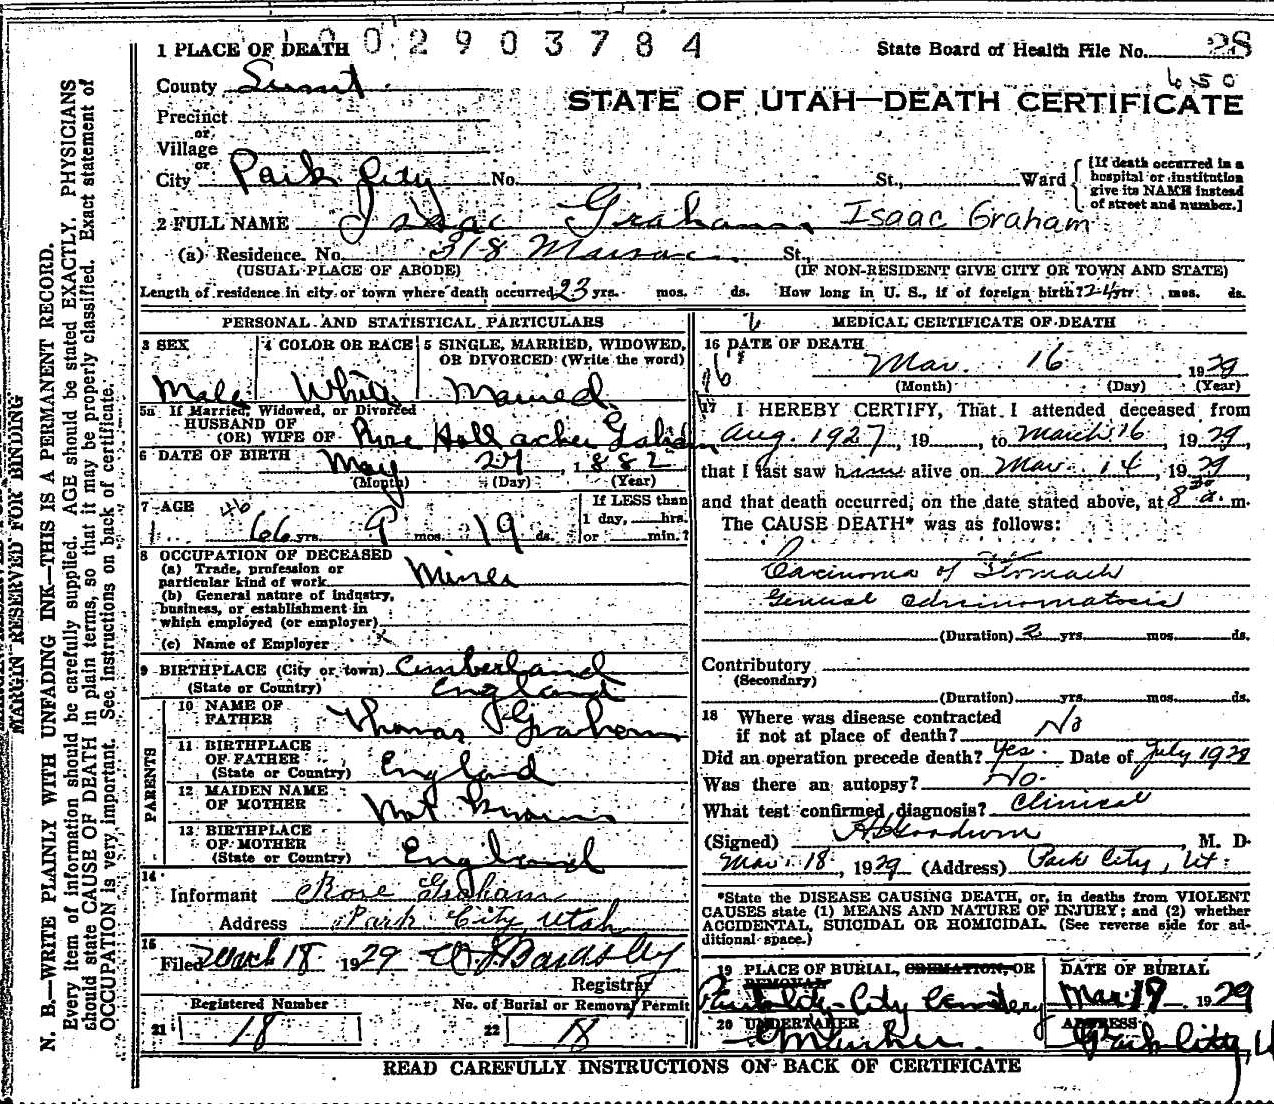 002903784
1 PLACE OF DEATH
State Board of Health File No. 28
County Summit
650
STATE OF UTAH—DEATH CERTIFICATE
Precinct
or
Village
or
City Park City No. , St., Ward
[If death occurred in a hospital or institution give its NAME instead of street and number.]
2 FULL NAME Isaac Graham Isaac Graham
(a) Residence. No. 318 St.,
(USUAL PLACE OF ABODE) (IF NON-RESIDENT GIVE CITY OR TOWN AND STATE)
Length of residence in city or town where death occurred 23 yrs. mos. ds. How long in U. S., if of foreign birth? 24 yrs. mos. ds.
PERSONAL AND STATISTICAL PARTICULARS
3 SEX 4 COLOR OR RACE 5 SINGLE, MARRIED, WIDOWED, OR DIVORCED (Write the word)
Male White Married
5a If Married, Widowed, or Divorced
HUSBAND OF
(OR) WIFE OF
6 DATE OF BIRTH May 27, 1882
(Month) (Day) (Year)
7 AGE 46
66 yrs. 9 mos. 19 ds.
If LESS than
1 day, hrs.
or min.?
8 OCCUPATION OF DECEASED
(a) Trade, profession or
particular kind of work Miner
(b) General nature of industry,
business, or establishment in
which employed (or employer)
(c) Name of Employer
9 BIRTHPLACE (City or town) Cumberland
(State or Country) England
PARENTS
10 NAME OF
FATHER Thomas Graham
11 BIRTHPLACE
OF FATHER
(State or Country) England
12 MAIDEN NAME
OF MOTHER Not Known
13 BIRTHPLACE
OF MOTHER
(State or Country) England
14
Informant Rose Graham
Address Park City, Utah
15
Filed March 18 1929
Registrar
Registered Number No. of Burial or Removal Permit
21 18 22 18
MEDICAL CERTIFICATE OF DEATH
16 DATE OF DEATH
Mar. 16, 1929
(Month) (Day) (Year)
17 I HEREBY CERTIFY, That I attended deceased from
Aug. 1927, 19 , to March 16, 1929,
that I last saw him alive on Mar. 14, 1929
and that death occurred, on the date stated above, at 8 30 a. m.
The CAUSE DEATH* was as follows:
Carcinoma of Stomach
General
(Duration) 2 yrs. mos. ds.
Contributory
(Secondary)
(Duration) yrs. mos. ds.
18 Where was disease contracted
if not at place of death? No
Did an operation precede death? Yes. Date of July 1928
Was there an autopsy? No.
What test confirmed diagnosis? Clinical
(Signed) , M. D.
Mar. 18, 1929 (Address) Park City, Ut.
*State the DISEASE CAUSING DEATH, or, in deaths from VIOLENT
CAUSES state (1) MEANS AND NATURE OF INJURY; and (2) whether
ACCIDENTAL, SUICIDAL OR HOMICIDAL. (See reverse side for ad-
ditional space.)
19 PLACE OF BURIAL, CREMATION, OR REMOVAL DATE OF BURIAL
City Cemetery Mar. 19, 1929
20 UNDERTAKER ADDRESS
Park City, U
READ CAREFULLY INSTRUCTIONS ON BACK OF CERTIFICATE
MARGIN RESERVED FOR BINDING
N. B.—WRITE PLAINLY WITH UNFADING INK—THIS IS A PERMANENT RECORD.
Every item of information should be carefully supplied. AGE should be stated EXACTLY. PHYSICIANS
should state CAUSE OF DEATH in plain terms, so that it may be properly classified. Exact statement of
OCCUPATION is very important. See instructions on back of certificate.